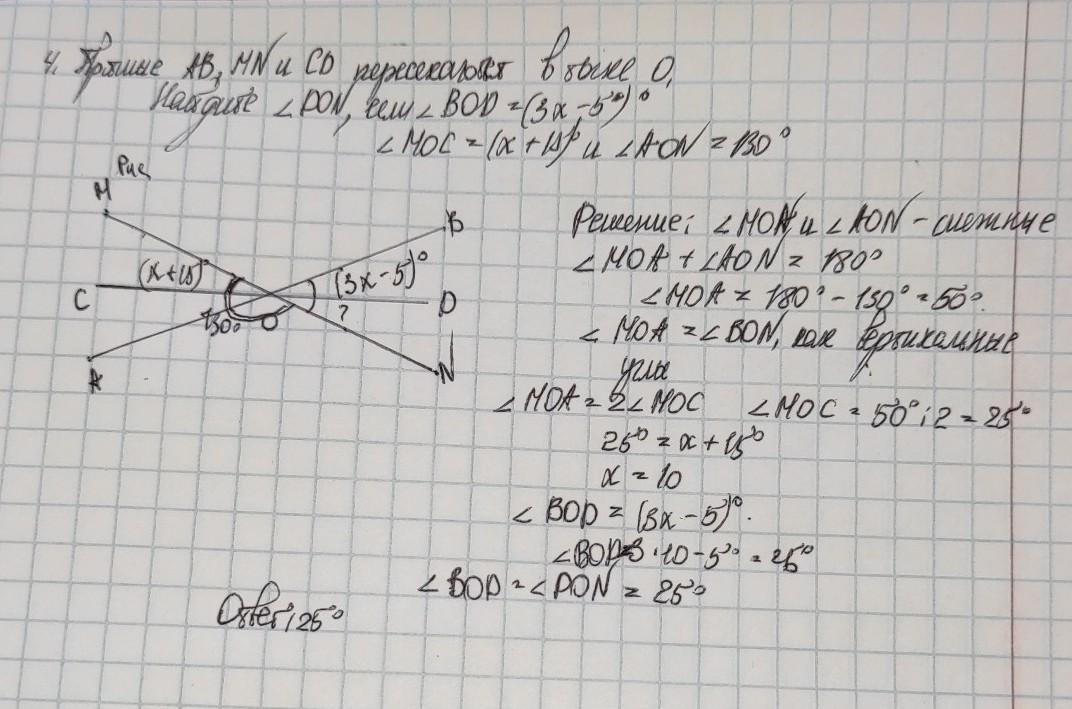 4. Прямые AB, MN и CD пересекаются в точке O.
Найдите ∠DON, если ∠BOD = (3x - 5°)°
∠MOC = (x + 15)° и ∠AON = 130°
Рис
M
B
(x+15)°
(3x - 5)°
C
D
130°
O
?
A
N
Решение: ∠MOA и ∠AON - смежные
∠MOA + ∠AON = 180°
∠MOA = 180° - 130° = 50°.
∠MOA = ∠BON, как вертикальные
углы
∠MOA = 2∠MOC ∠MOC = 50° : 2 = 25°
25° = x + 15°
x = 10
∠BOD = (3x - 5)°.
∠BOD = 3 · 10 - 5° = 25°
∠BOD = ∠DON = 25°
Ответ: 25°